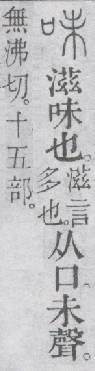 味 滋味也。滋言多也。从口未聲。
無沸切。十五部。